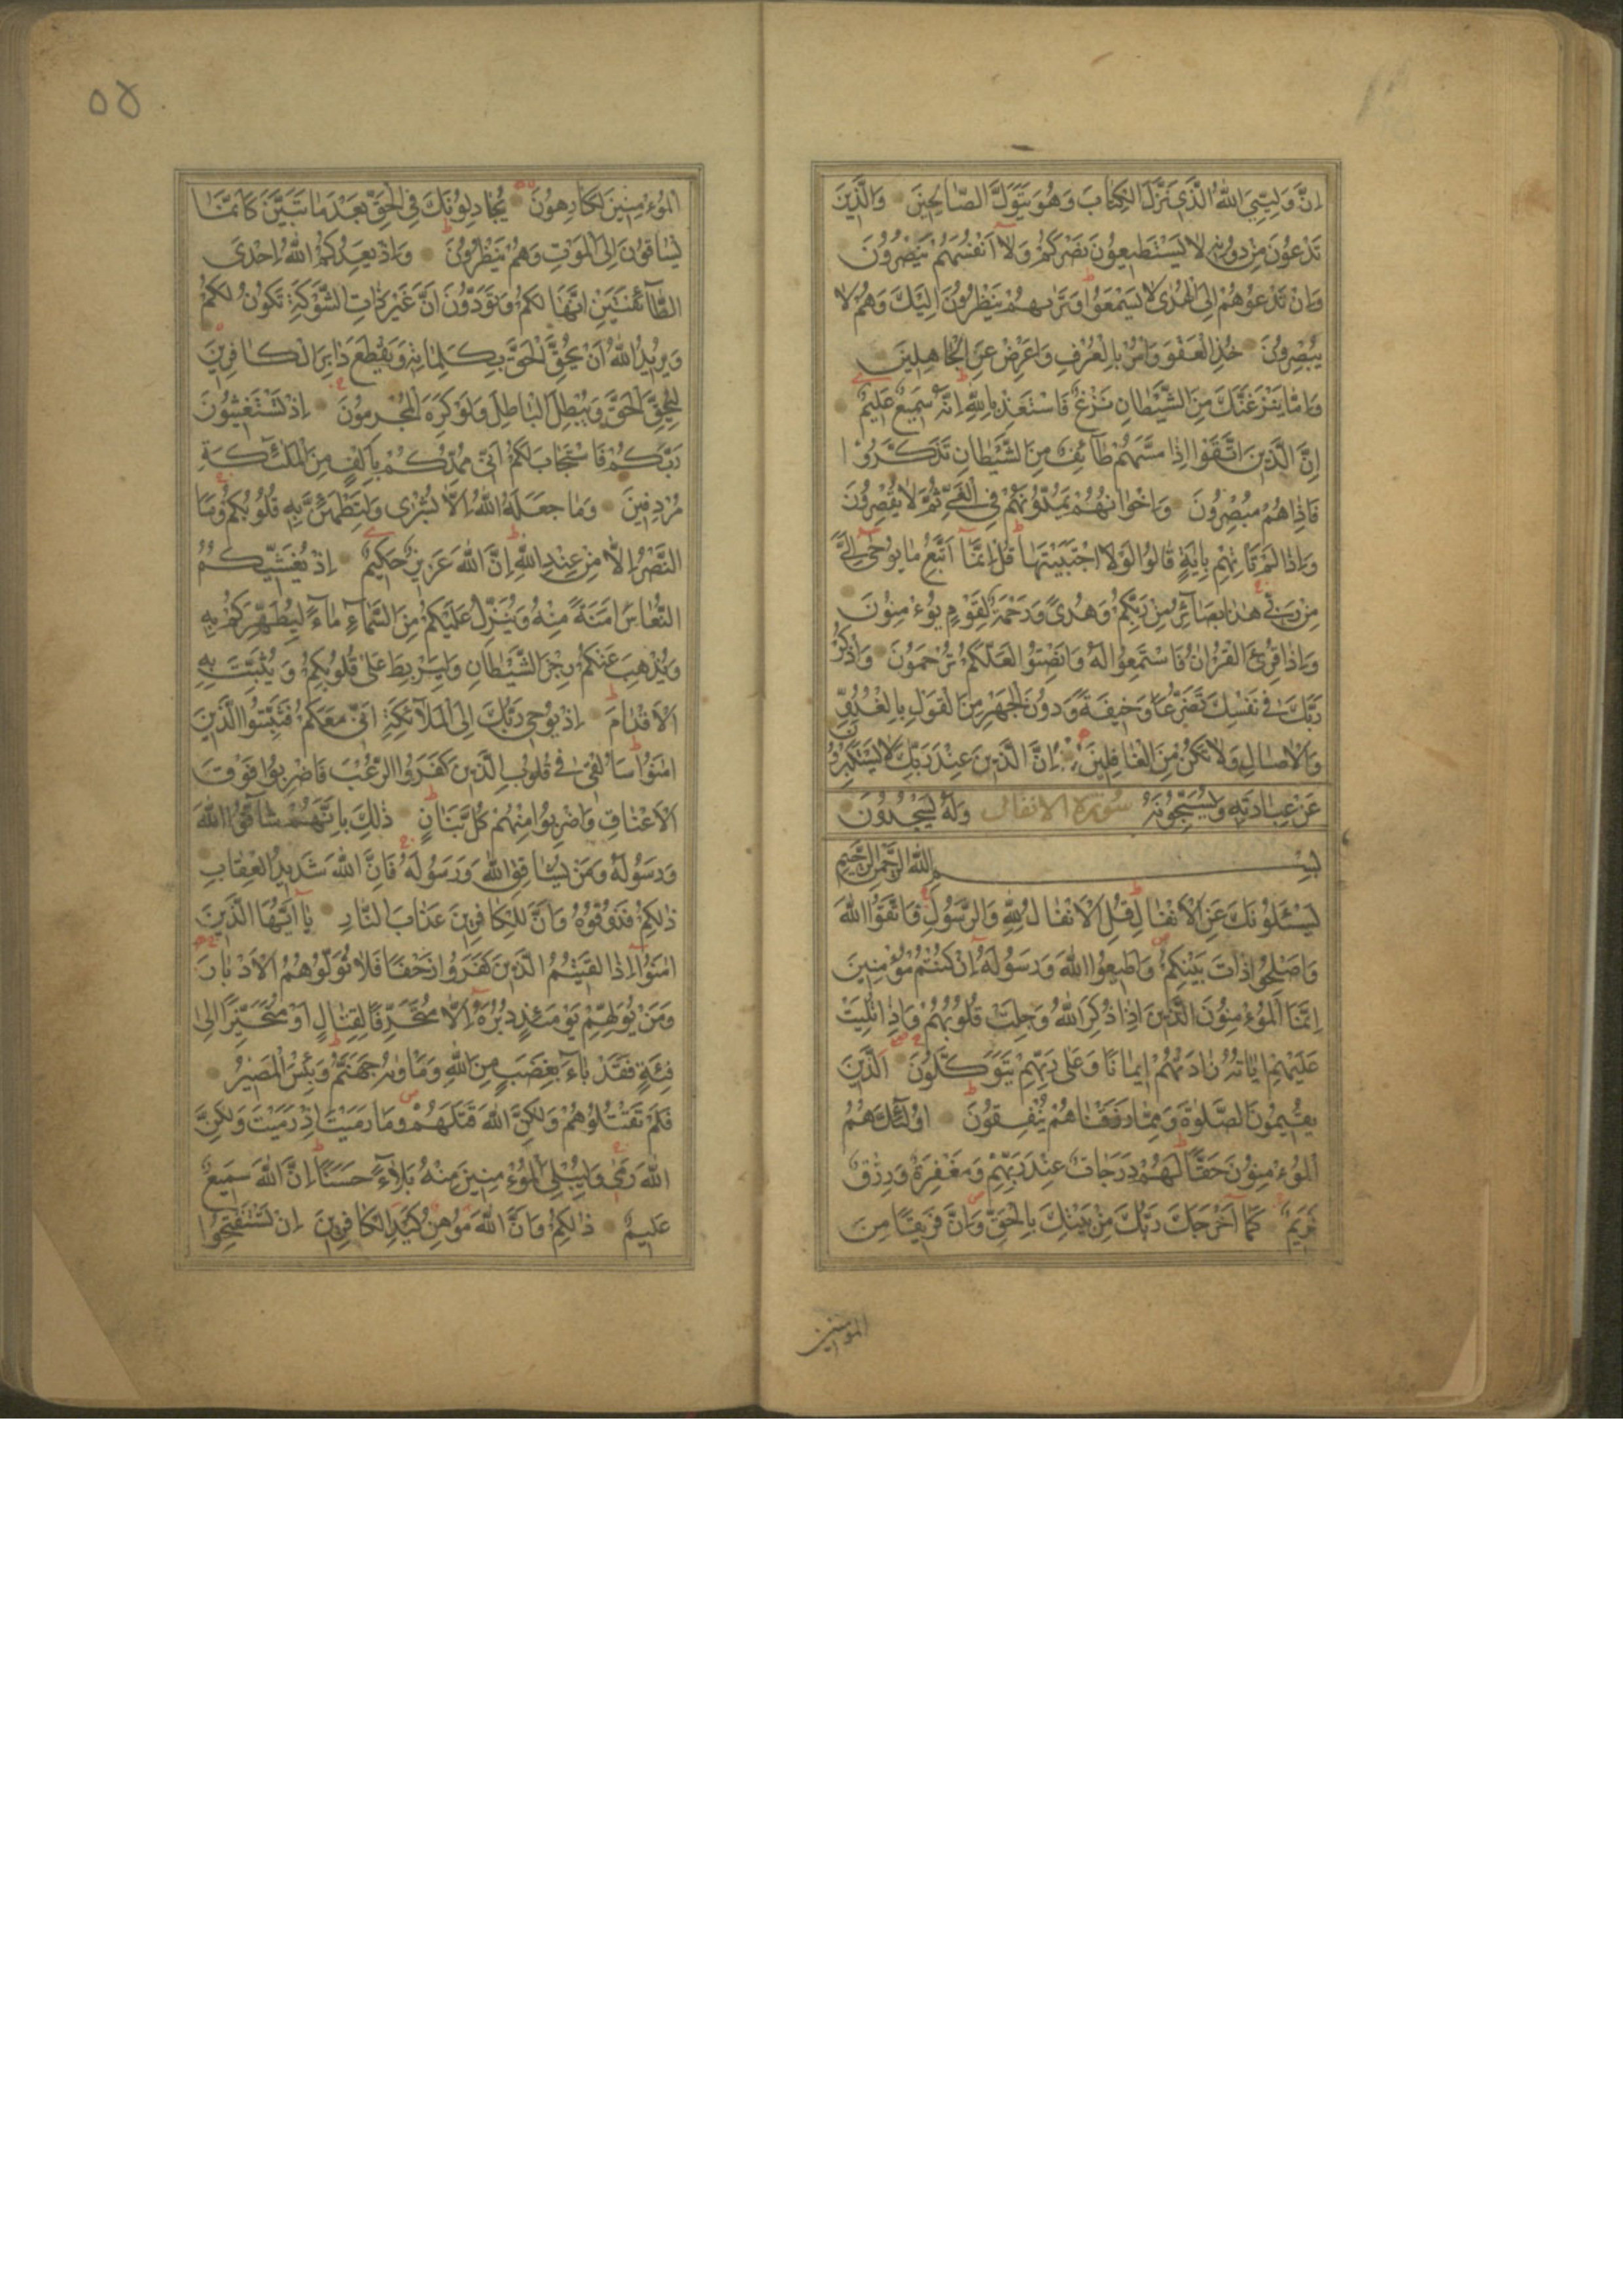 اِنَّ وَلِيِّيَ اللّٰهُ الَّذِي نَزَّلَ الْكِتَابَ وَهُوَ يَتَوَلَّى الصَّالِحِينَ وَالَّذِينَ
تَدْعُونَ مِنْ دُونِهِ لَا يَسْتَطِيعُونَ نَصْرَكُمْ وَلَا اَنْفُسَهُمْ يَنْصُرُونَ
وَاِنْ تَدْعُوهُمْ اِلَى الْهُدٰى لَا يَسْمَعُوا وَتَرٰيهُمْ يَنْظُرُونَ اِلَيْكَ وَهُمْ لَا
يُبْصِرُونَ خُذِ الْعَفْوَ وَأْمُرْ بِالْعُرْفِ وَاَعْرِضْ عَنِ الْجَاهِلِينَ
وَاِمَّا يَنْزَغَنَّكَ مِنَ الشَّيْطَانِ نَزْغٌ فَاسْتَعِذْ بِاللّٰهِ اِنَّهُ سَمِيعٌ عَلِيمٌ
اِنَّ الَّذِينَ اتَّقَوْا اِذَا مَسَّهُمْ طَآئِفٌ مِنَ الشَّيْطَانِ تَذَكَّرُوا
فَاِذَا هُمْ مُبْصِرُونَ وَاِخْوَانُهُمْ يَمُدُّونَهُمْ فِي الْغَيِّ ثُمَّ لَا يُقْصِرُونَ
وَاِذَا لَمْ تَأْتِهِمْ بِاٰيَةٍ قَالُوا لَوْلَا اجْتَبَيْتَهَا قُلْ اِنَّمَا اَتَّبِعُ مَا يُوحٰى اِلَيَّ
مِنْ رَبِّي هٰذَا بَصَآئِرُ مِنْ رَبِّكُمْ وَهُدًى وَرَحْمَةٌ لِقَوْمٍ يُؤْمِنُونَ
وَاِذَا قُرِئَ الْقُرْاٰنُ فَاسْتَمِعُوا لَهُ وَاَنْصِتُوا لَعَلَّكُمْ تُرْحَمُونَ وَاذْكُرْ
رَبَّكَ فِي نَفْسِكَ تَضَرُّعًا وَخِيفَةً وَدُونَ الْجَهْرِ مِنَ الْقَوْلِ بِالْغُدُوِّ
وَالْاٰصَالِ وَلَا تَكُنْ مِنَ الْغَافِلِينَ اِنَّ الَّذِينَ عِنْدَ رَبِّكَ لَا يَسْتَكْبِرُونَ
عَنْ عِبَادَتِهِ وَيُسَبِّحُونَهُ سُورَة الانفال وَلَهُ يَسْجُدُونَ
بِسْمِ اللّٰهِ الرَّحْمٰنِ الرَّحِيمِ
يَسْئَلُونَكَ عَنِ الْاَنْفَالِ قُلِ الْاَنْفَالُ لِلّٰهِ وَالرَّسُولِ فَاتَّقُوا اللّٰهَ
وَاَصْلِحُوا ذَاتَ بَيْنِكُمْ وَاَطِيعُوا اللّٰهَ وَرَسُولَهُ اِنْ كُنْتُمْ مُؤْمِنِينَ
اِنَّمَا الْمُؤْمِنُونَ الَّذِينَ اِذَا ذُكِرَ اللّٰهُ وَجِلَتْ قُلُوبُهُمْ وَاِذَا تُلِيَتْ
عَلَيْهِمْ اٰيَاتُهُ زَادَتْهُمْ اِيمَانًا وَعَلٰى رَبِّهِمْ يَتَوَكَّلُونَ اَلَّذِينَ
يُقِيمُونَ الصَّلٰوةَ وَمِمَّا رَزَقْنَاهُمْ يُنْفِقُونَ اُولٰئِكَ هُمُ
الْمُؤْمِنُونَ حَقًّا لَهُمْ دَرَجَاتٌ عِنْدَ رَبِّهِمْ وَمَغْفِرَةٌ وَرِزْقٌ
كَرِيمٌ كَمَا اَخْرَجَكَ رَبُّكَ مِنْ بَيْتِكَ بِالْحَقِّ وَاِنَّ فَرِيقًا مِنَ
المؤمنين
٥٤
الْمُؤْمِنِينَ لَكَارِهُونَ يُجَادِلُونَكَ فِي الْحَقِّ بَعْدَ مَا تَبَيَّنَ كَاَنَّمَا
يُسَاقُونَ اِلَى الْمَوْتِ وَهُمْ يَنْظُرُونَ وَاِذْ يَعِدُكُمُ اللّٰهُ اِحْدَى
الطَّآئِفَتَيْنِ اَنَّهَا لَكُمْ وَتَوَدُّونَ اَنَّ غَيْرَ ذَاتِ الشَّوْكَةِ تَكُونُ لَكُمْ
وَيُرِيدُ اللّٰهُ اَنْ يُحِقَّ الْحَقَّ بِكَلِمَاتِهِ وَيَقْطَعَ دَابِرَ الْكَافِرِينَ
لِيُحِقَّ الْحَقَّ وَيُبْطِلَ الْبَاطِلَ وَلَوْ كَرِهَ الْمُجْرِمُونَ اِذْ تَسْتَغِيثُونَ
رَبَّكُمْ فَاسْتَجَابَ لَكُمْ اَنِّي مُمِدُّكُمْ بِاَلْفٍ مِنَ الْمَلٰٓئِكَةِ
مُرْدِفِينَ وَمَا جَعَلَهُ اللّٰهُ اِلَّا بُشْرٰى وَلِتَطْمَئِنَّ بِهِ قُلُوبُكُمْ وَمَا
النَّصْرُ اِلَّا مِنْ عِنْدِ اللّٰهِ اِنَّ اللّٰهَ عَزِيزٌ حَكِيمٌ اِذْ يُغَشِّيكُمُ
النُّعَاسَ اَمَنَةً مِنْهُ وَيُنَزِّلُ عَلَيْكُمْ مِنَ السَّمَآءِ مَآءً لِيُطَهِّرَكُمْ بِهِ
وَيُذْهِبَ عَنْكُمْ رِجْزَ الشَّيْطَانِ وَلِيَرْبِطَ عَلٰى قُلُوبِكُمْ وَيُثَبِّتَ بِهِ
الْاَقْدَامَ اِذْ يُوحِي رَبُّكَ اِلَى الْمَلَآئِكَةِ اَنِّي مَعَكُمْ فَثَبِّتُوا الَّذِينَ
اٰمَنُوا سَاُلْقِي فِي قُلُوبِ الَّذِينَ كَفَرُوا الرُّعْبَ فَاضْرِبُوا فَوْقَ
الْاَعْنَاقِ وَاضْرِبُوا مِنْهُمْ كُلَّ بَنَانٍ ذٰلِكَ بِاَنَّهُمْ شَآقُّوا اللّٰهَ
وَرَسُولَهُ وَمَنْ يُشَاقِقِ اللّٰهَ وَرَسُولَهُ فَاِنَّ اللّٰهَ شَدِيدُ الْعِقَابِ
ذٰلِكُمْ فَذُوقُوهُ وَاَنَّ لِلْكَافِرِينَ عَذَابَ النَّارِ يَآ اَيُّهَا الَّذِينَ
اٰمَنُوا اِذَا لَقِيتُمُ الَّذِينَ كَفَرُوا زَحْفًا فَلَا تُوَلُّوهُمُ الْاَدْبَارَ
وَمَنْ يُوَلِّهِمْ يَوْمَئِذٍ دُبُرَهُ اِلَّا مُتَحَرِّفًا لِقِتَالٍ اَوْ مُتَحَيِّزًا اِلٰى
فِئَةٍ فَقَدْ بَآءَ بِغَضَبٍ مِنَ اللّٰهِ وَمَاْوٰيهُ جَهَنَّمُ وَبِئْسَ الْمَصِيرُ
فَلَمْ تَقْتُلُوهُمْ وَلٰكِنَّ اللّٰهَ قَتَلَهُمْ وَمَا رَمَيْتَ اِذْ رَمَيْتَ وَلٰكِنَّ
اللّٰهَ رَمٰى وَلِيُبْلِيَ الْمُؤْمِنِينَ مِنْهُ بَلَآءً حَسَنًا اِنَّ اللّٰهَ سَمِيعٌ
عَلِيمٌ ذٰلِكُمْ وَاَنَّ اللّٰهَ مُوهِنُ كَيْدِ الْكَافِرِينَ اِنْ تَسْتَفْتِحُوا